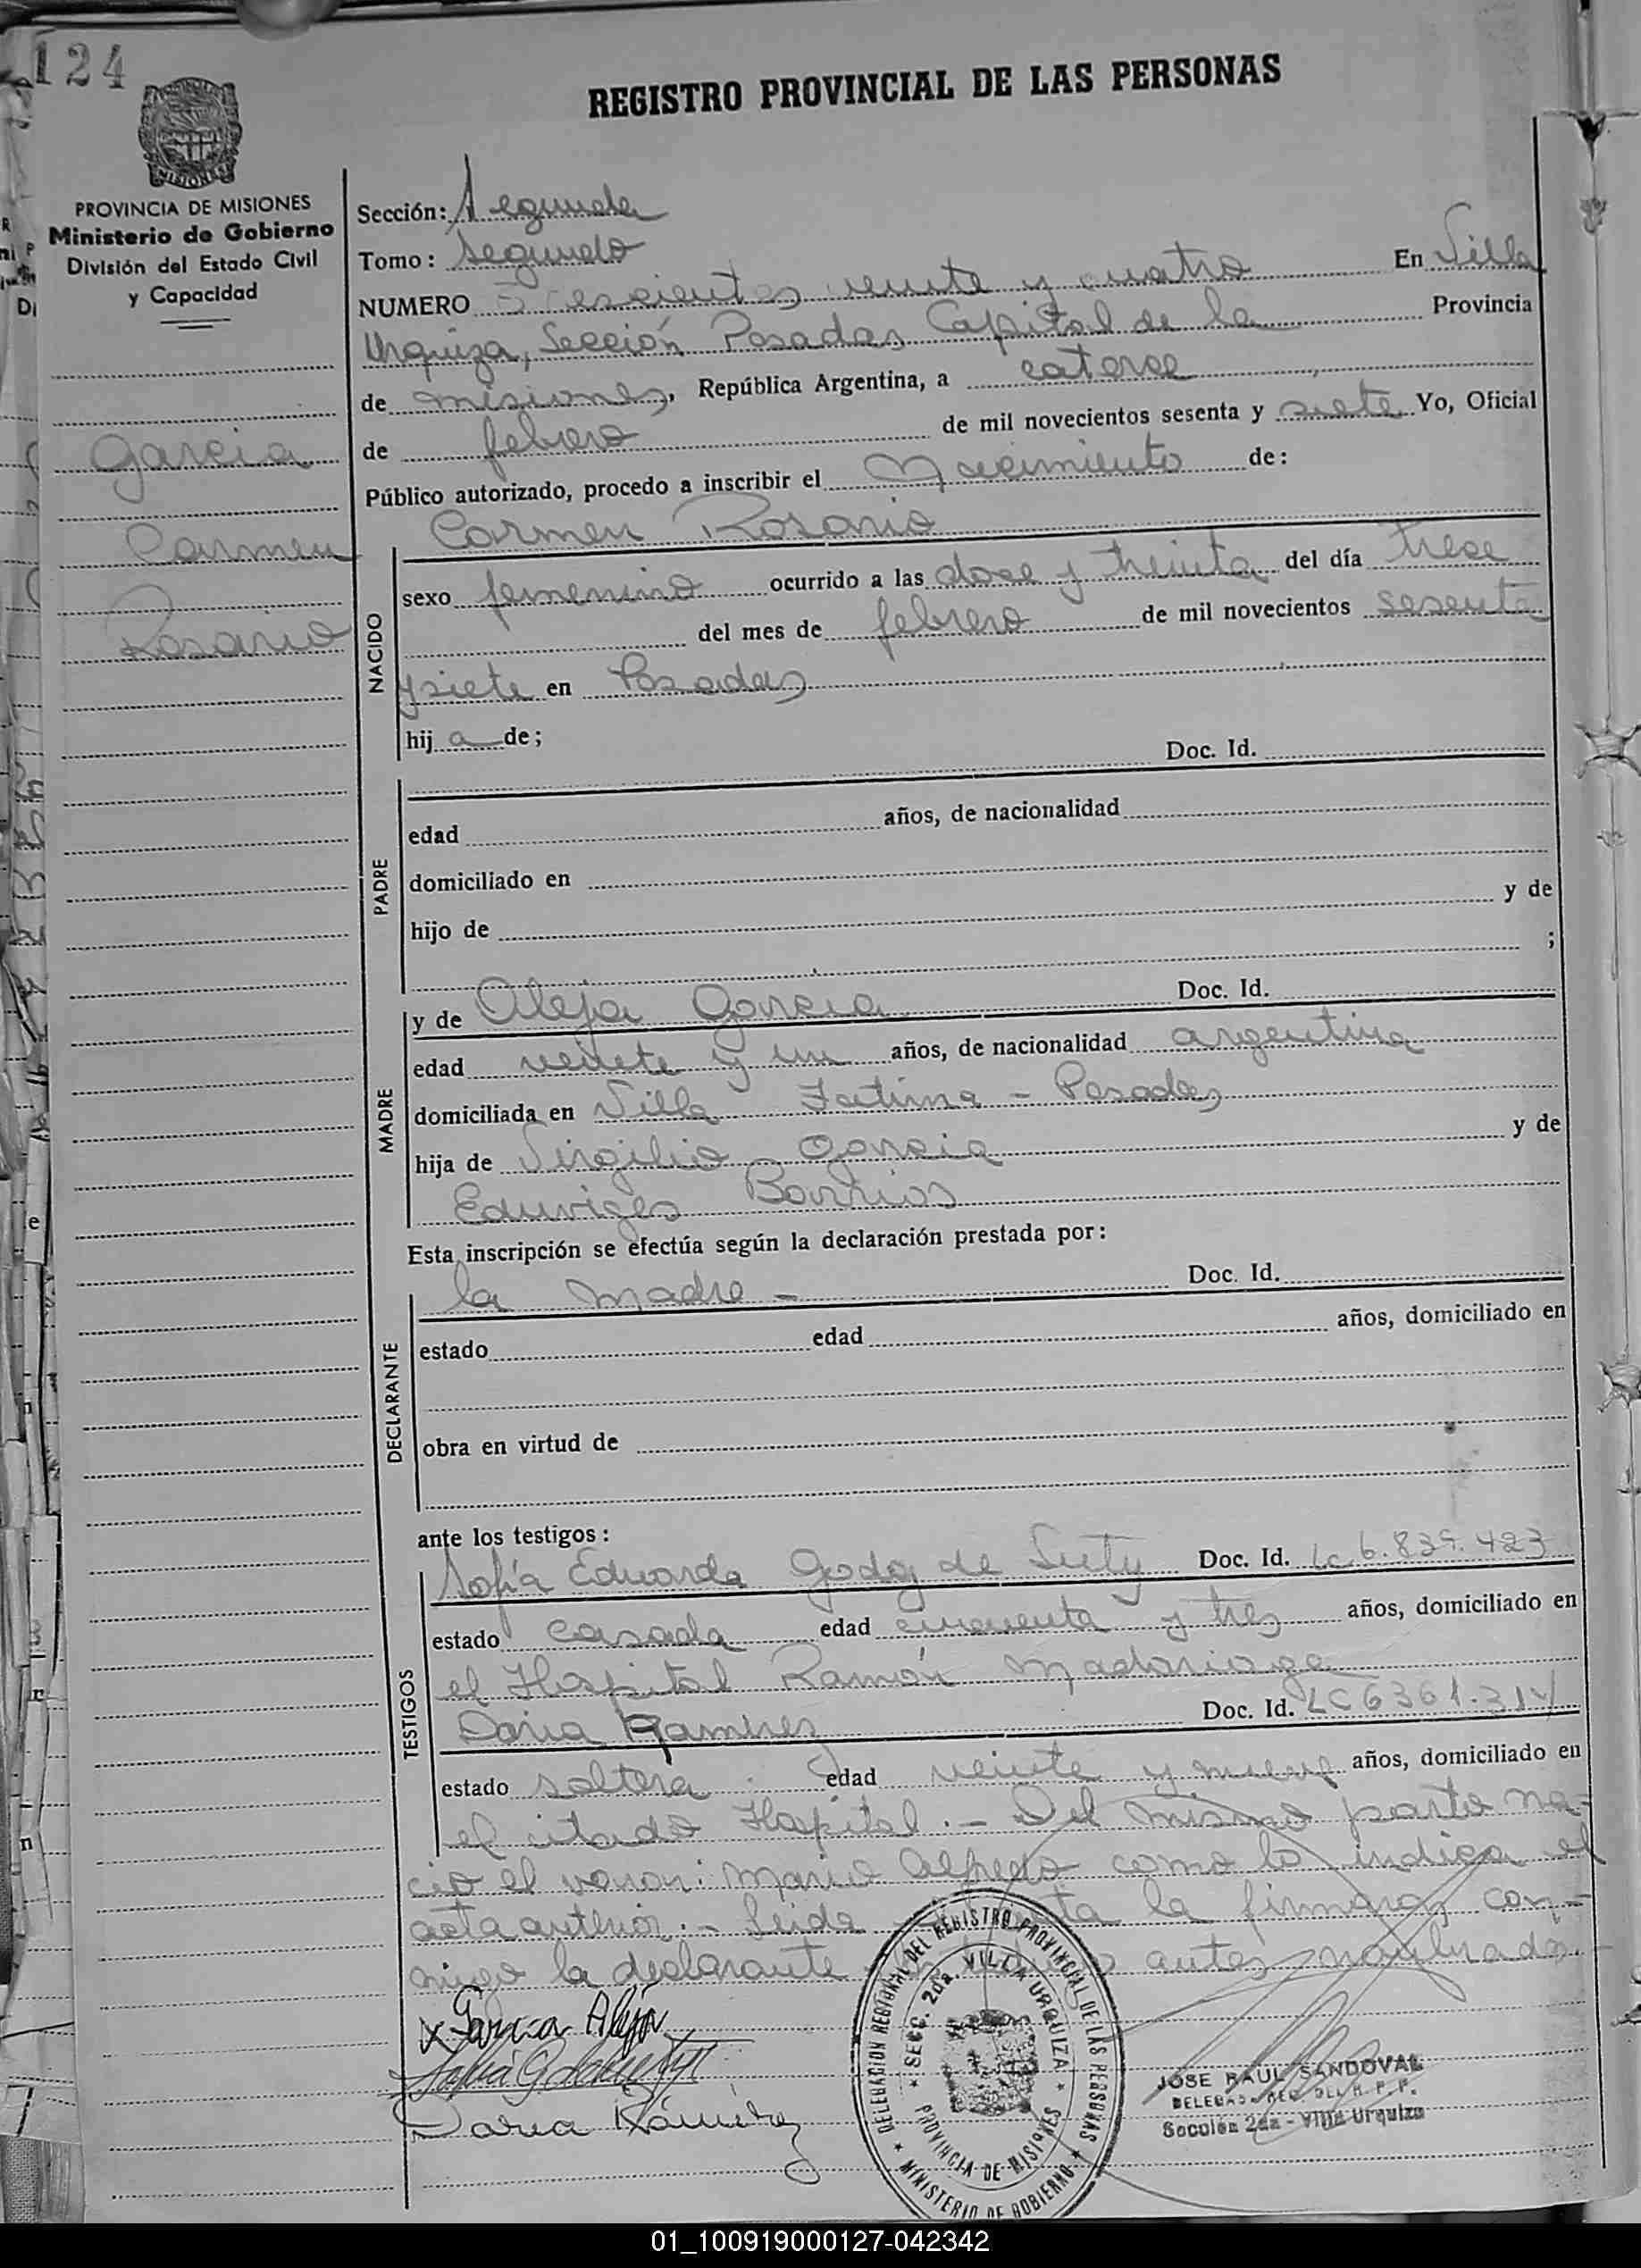 124
REGISTRO PROVINCIAL DE LAS PERSONAS
MISIONES
PROVINCIA DE MISIONES
Ministerio de Gobierno
División del Estado Civil
y Capacidad
Garcia
Carmen
Rosario
Sección: Segunda
Tomo: Segundo
NUMERO Trescientos veinte y cuatro En Villa
Urquiza, Sección Posadas Capital de la Provincia
de Misiones, República Argentina, a catorce
de febrero de mil novecientos sesenta y siete Yo, Oficial
Público autorizado, procedo a inscribir el Nacimiento de:
Carmen Rosario
NACIDO
sexo femenino ocurrido a las doce y treinta del día trece
del mes de febrero de mil novecientos sesenta
y siete en Posadas
hij a de;
Doc. Id.
PADRE
edad años, de nacionalidad
domiciliado en
hijo de y de
;
MADRE
y de Aleja Garcia Doc. Id.
edad veinte y un años, de nacionalidad argentina
domiciliada en Villa Fatima - Posadas
hija de Virgilio Garcia y de
Eduviges Barrios
Esta inscripción se efectúa según la declaración prestada por:
la madre - Doc. Id.
DECLARANTE
estado edad años, domiciliado en
obra en virtud de
ante los testigos:
TESTIGOS
Sofía Eduarda Godoy de Doc. Id. Lc 6.839.423
estado casada edad cincuenta y tres años, domiciliado en
el Hospital Ramón Madariaga
Daria Ramirez Doc. Id. LC 6361.314
estado soltera. edad veinte y nueve años, domiciliado en
el citado Hospital.- Del mismo parto na-
cio el varon: Mario Alfredo como lo indica el
acta anterior.- Leida ta la firmaron con-
migo la declarante antes nombrados.
x Garcia Aleja
Daria Ramirez
DELEGACION REGIONAL DEL REGISTRO PROVINCIAL DE LAS PERSONAS
MINISTERIO DE GOBIERNO
SECC. 2da. VILLA URQUIZA
PROVINCIA DE MISIONES
JOSE RAUL SANDOVAL
DELEGADO REG. DEL R. P. P.
Sección 2da - Villa Urquiza
01_100919000127-042342